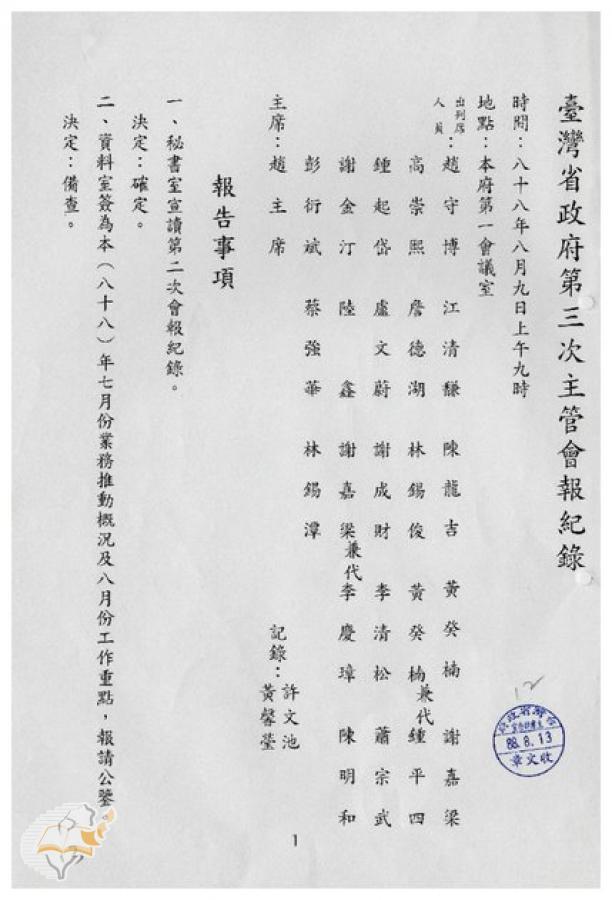 臺灣省政府第三次主管會報紀錄
時間：八十八年八月九日上午九時
地點：本府第一會議室
出列席人員：趙守博 江清馦 陳龍吉 黃癸楠 謝嘉梁
高崇熙 詹德湖 林錫俊 黃癸楠兼代 鍾平四
鍾起岱 盧文蔚 謝成財 李清松 蕭宗武
謝金汀 陸鑫 謝嘉梁兼代 李慶璋 陳明和
彭衍斌 蔡強華 林錫潭
主席：趙主席 記錄：許文池 黃馨瑩
報告事項
一、秘書室宣讀第二次會報紀錄。
決定：確定。
二、資料室簽為本（八十八）年七月份業務推動概況及八月份工作重點，報請公鑒。
決定：備查。
12
88.8.13
收文章
1